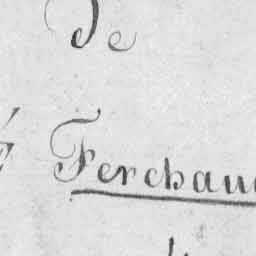 De
é Ferchau